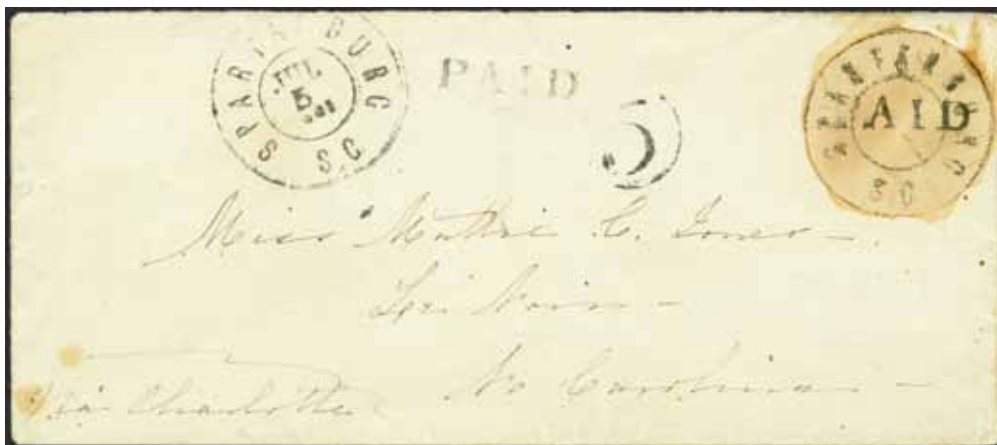 SPARTANBURG SC
JUL 5 1861
PAID
5
SPARTANBURG SC
AID
Miss Mattie C. Jones
Le Noir
No Carolina
Via Charlotte